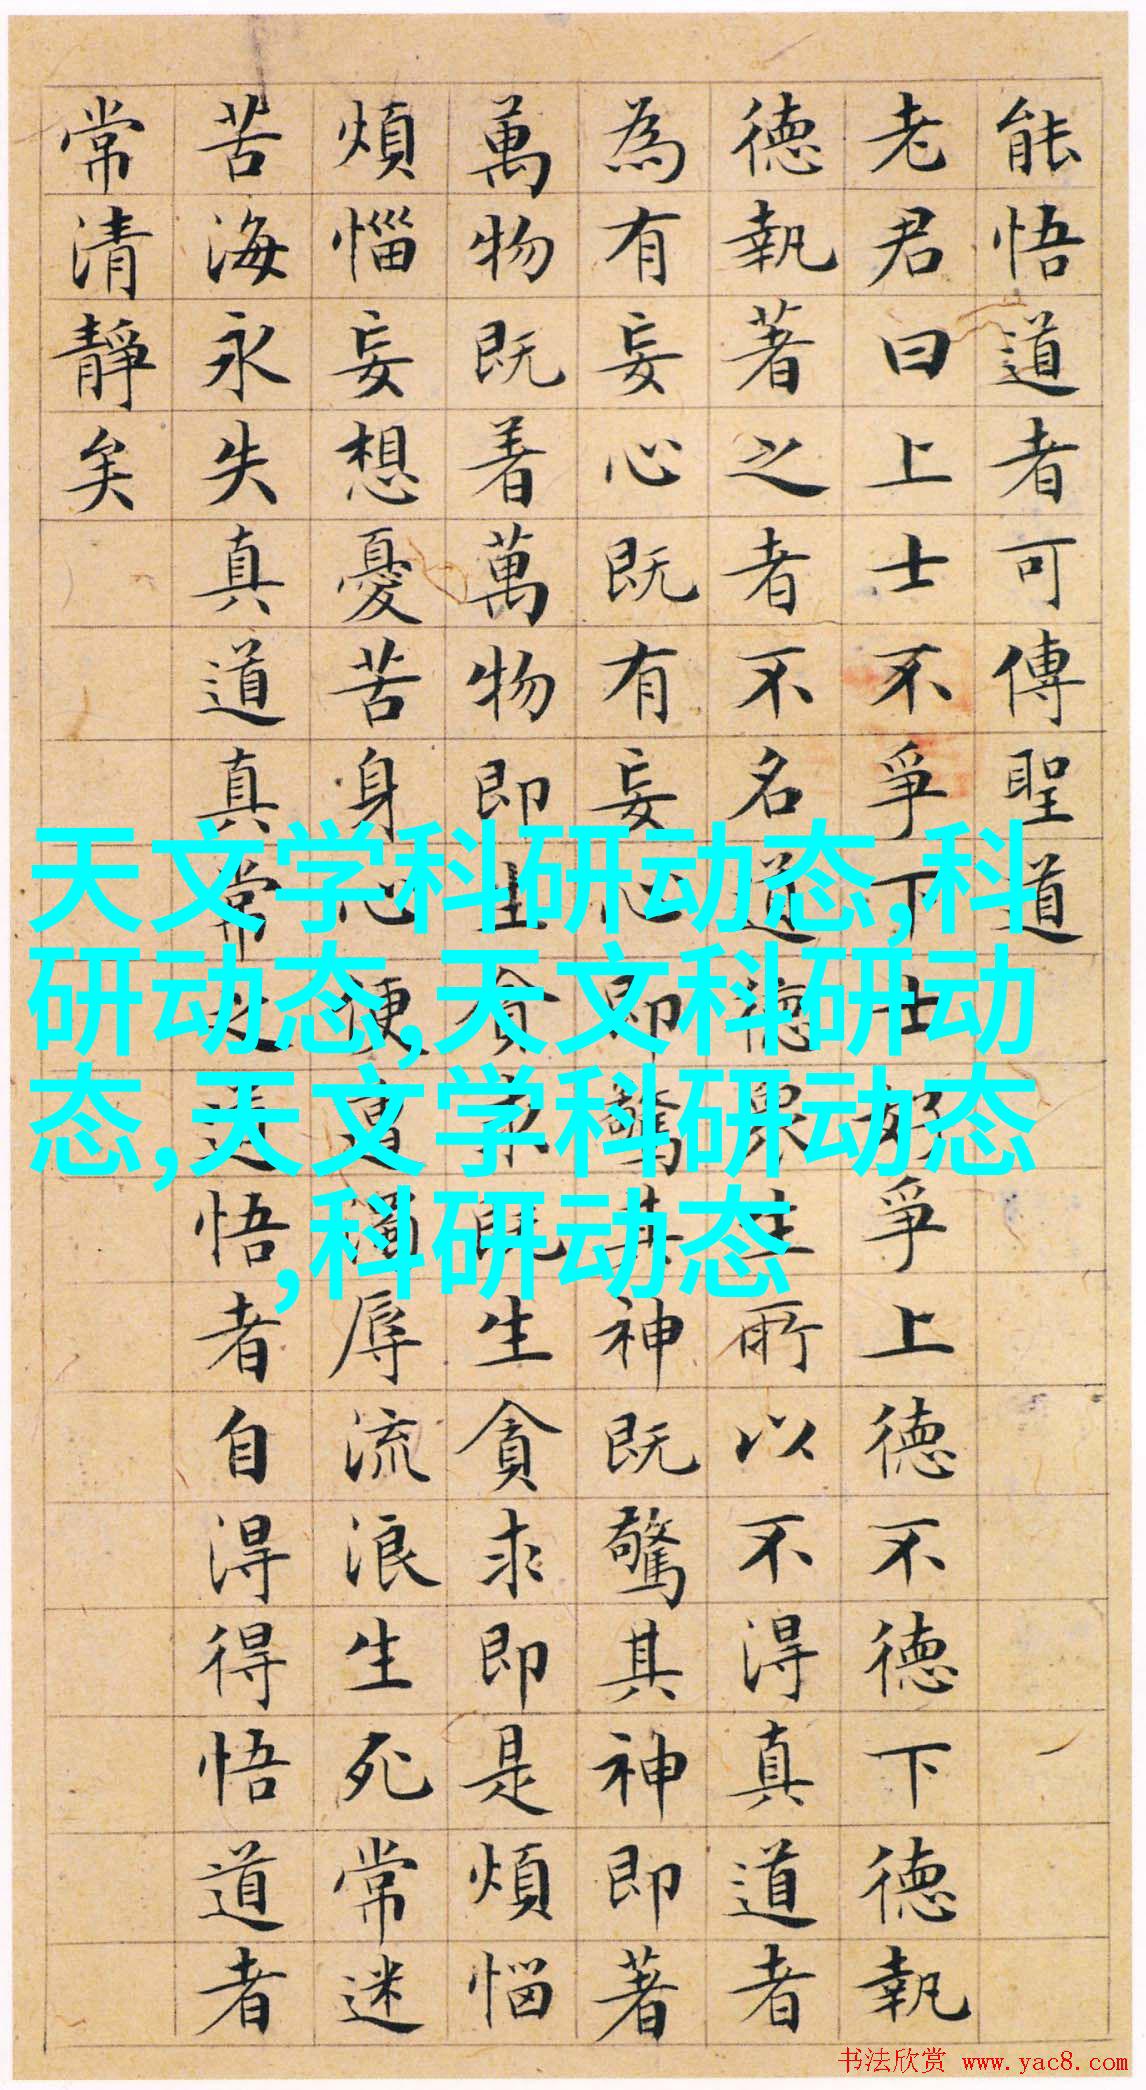 能悟道者可傳聖道
老君曰上士不爭下士好爭上德不德下德執
德執著之者不名道德眾生所以不得真道者
為有妄心既有妄心即驚其神既驚其神即著
萬物既着萬物即生貪求既生貪求即是煩惱
煩惱妄想憂苦身心便遭濁辱流浪生死常迷
苦海永失真道真常之道悟者自得得悟道者
常清靜矣
天文学科研动态,科
研动态,天文科研动
态,天文学科研动态
,科研动态
书法欣赏 www.yac8.com